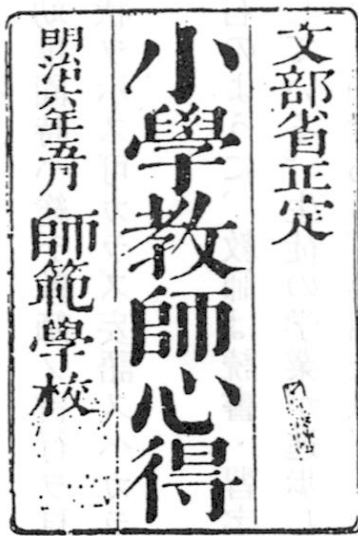 文部省正定
小學敎師心得
明治六年五月 師範學校